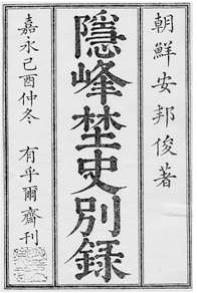 朝鮮安邦俊著
隱峰埜史別録
嘉永己酉仲冬 有乎爾齋刊